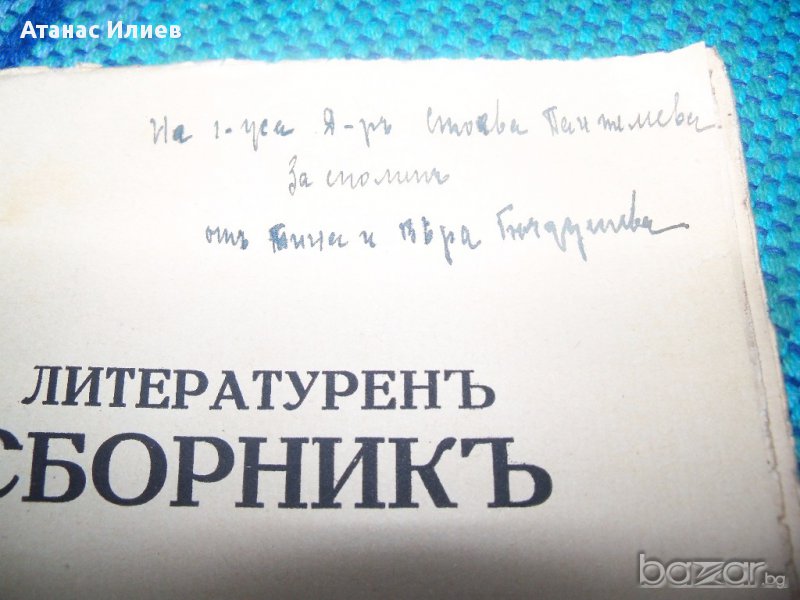 Атанас Илиев
На г-ца Д-ръ Стоева Пантелеева.
За споменъ
отъ и Вѣра
ЛИТЕРАТУРЕНЪ
СБОРНИКЪ
bazar.bg